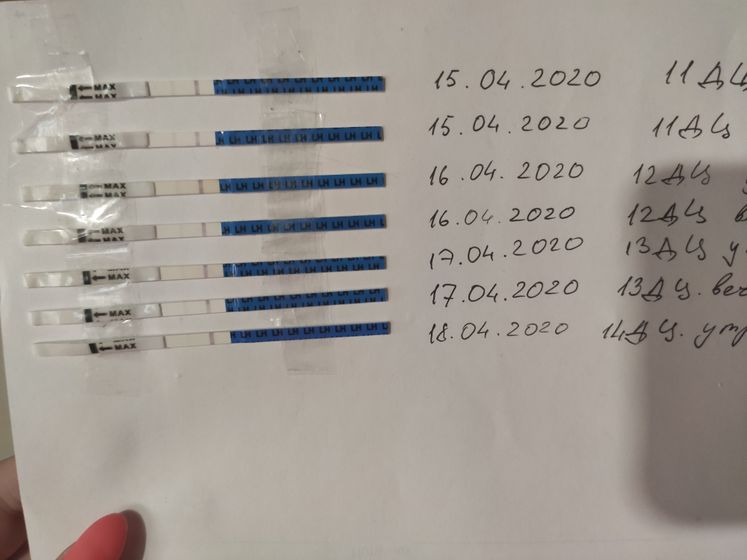 ←MAX
←MAX LH LH LH LH LH LH LH LH 15.04.2020 11ДЦ
←MAX
←MAX LH LH LH LH LH LH LH LH 15.04.2020 11ДЦ
←MAX
←MAX LH LH LH LH LH LH LH LH 16.04.2020 12ДЦ
←MAX
←MAX LH LH LH LH LH LH LH LH 16.04.2020 12ДЦ
←MAX LH LH LH LH LH LH LH LH 17.04.2020 13ДЦ
←MAX LH LH LH LH LH LH LH LH 17.04.2020 13ДЦ. веч
←MAX LH LH LH LH LH LH LH LH 18.04.2020 14ДЦ. утр